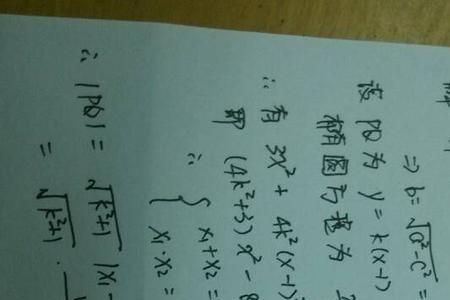 ⇒ b=√a²-c² =
设 PQ 为 y=k(x-1)
椭圆方程为
∴ 有 3x² + 4k²(x-1)
即 (4k²+3)x² - 8
∴ { x₁+x₂ =
x₁·x₂ =
∴ |PQ| = √k²+1 |x₁-
= √k²+1 ·